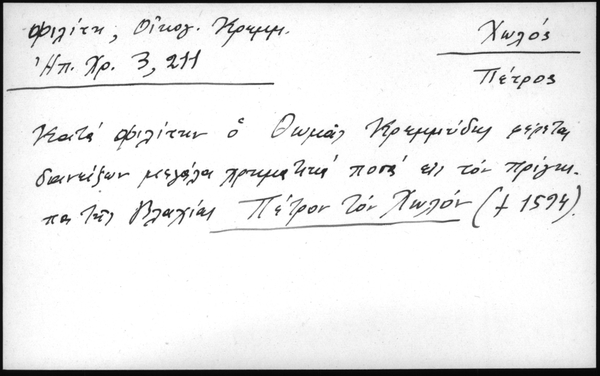 Φιλίτη, Οἰκογ. Κρεμμ.
Ἠπ. Χρ. 3, 211
Χωλός
Πέτρος
Κατά Φιλίτην ὁ Θωμᾶς Κρεμμύδης φέρεται
δανείζων μεγάλα χρηματικά ποσά εἰς τόν πρίγκι-
πα τῆς Βλαχίας Πέτρον τόν Χωλόν († 1594).